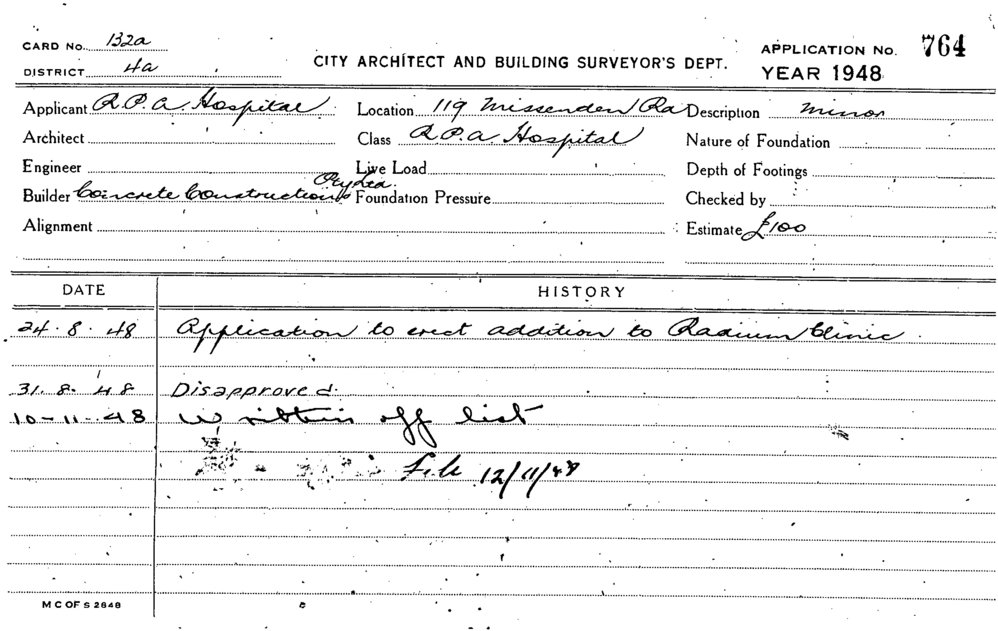 CARD No. 132a
DISTRICT 4a
CITY ARCHITECT AND BUILDING SURVEYOR'S DEPT.
APPLICATION No. 764
YEAR 1948
Applicant R.P.A. Hospital Location 119 Missenden Rd Description Minor
Architect Class R.P.A Hospital Nature of Foundation
Engineer Live Load Depth of Footings
Builder Concrete Constructions Pty Ltd. Foundation Pressure Checked by
Alignment Estimate £100
DATE HISTORY
24.8.48 Application to erect addition to Radium Clinic
31.8.48 Disapproved.
10-11-48 Written off list
File 12/11/48
M C OF S 2848